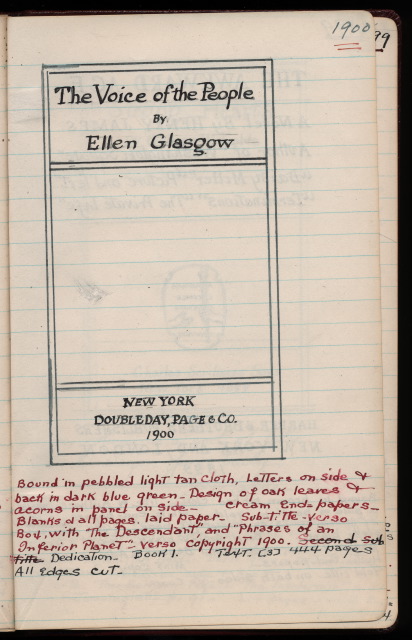 1900
99
The Voice of the People
By
Ellen Glasgow
NEW YORK
DOUBLEDAY, PAGE & CO.
1900
Bound in pebbled light tan cloth, Letters on side &
back in dark blue green. Design of oak leaves &
acorns in panel on side. Cream End-papers
Blanks all pages. laid paper. Sub-title-verso
Box, with "The Descendant", and "Phrases of an
Inferior Planet" - verso copyright 1900. Second sub
title Dedication. Book 1. Text. [3] 444 pages
All edges cut.